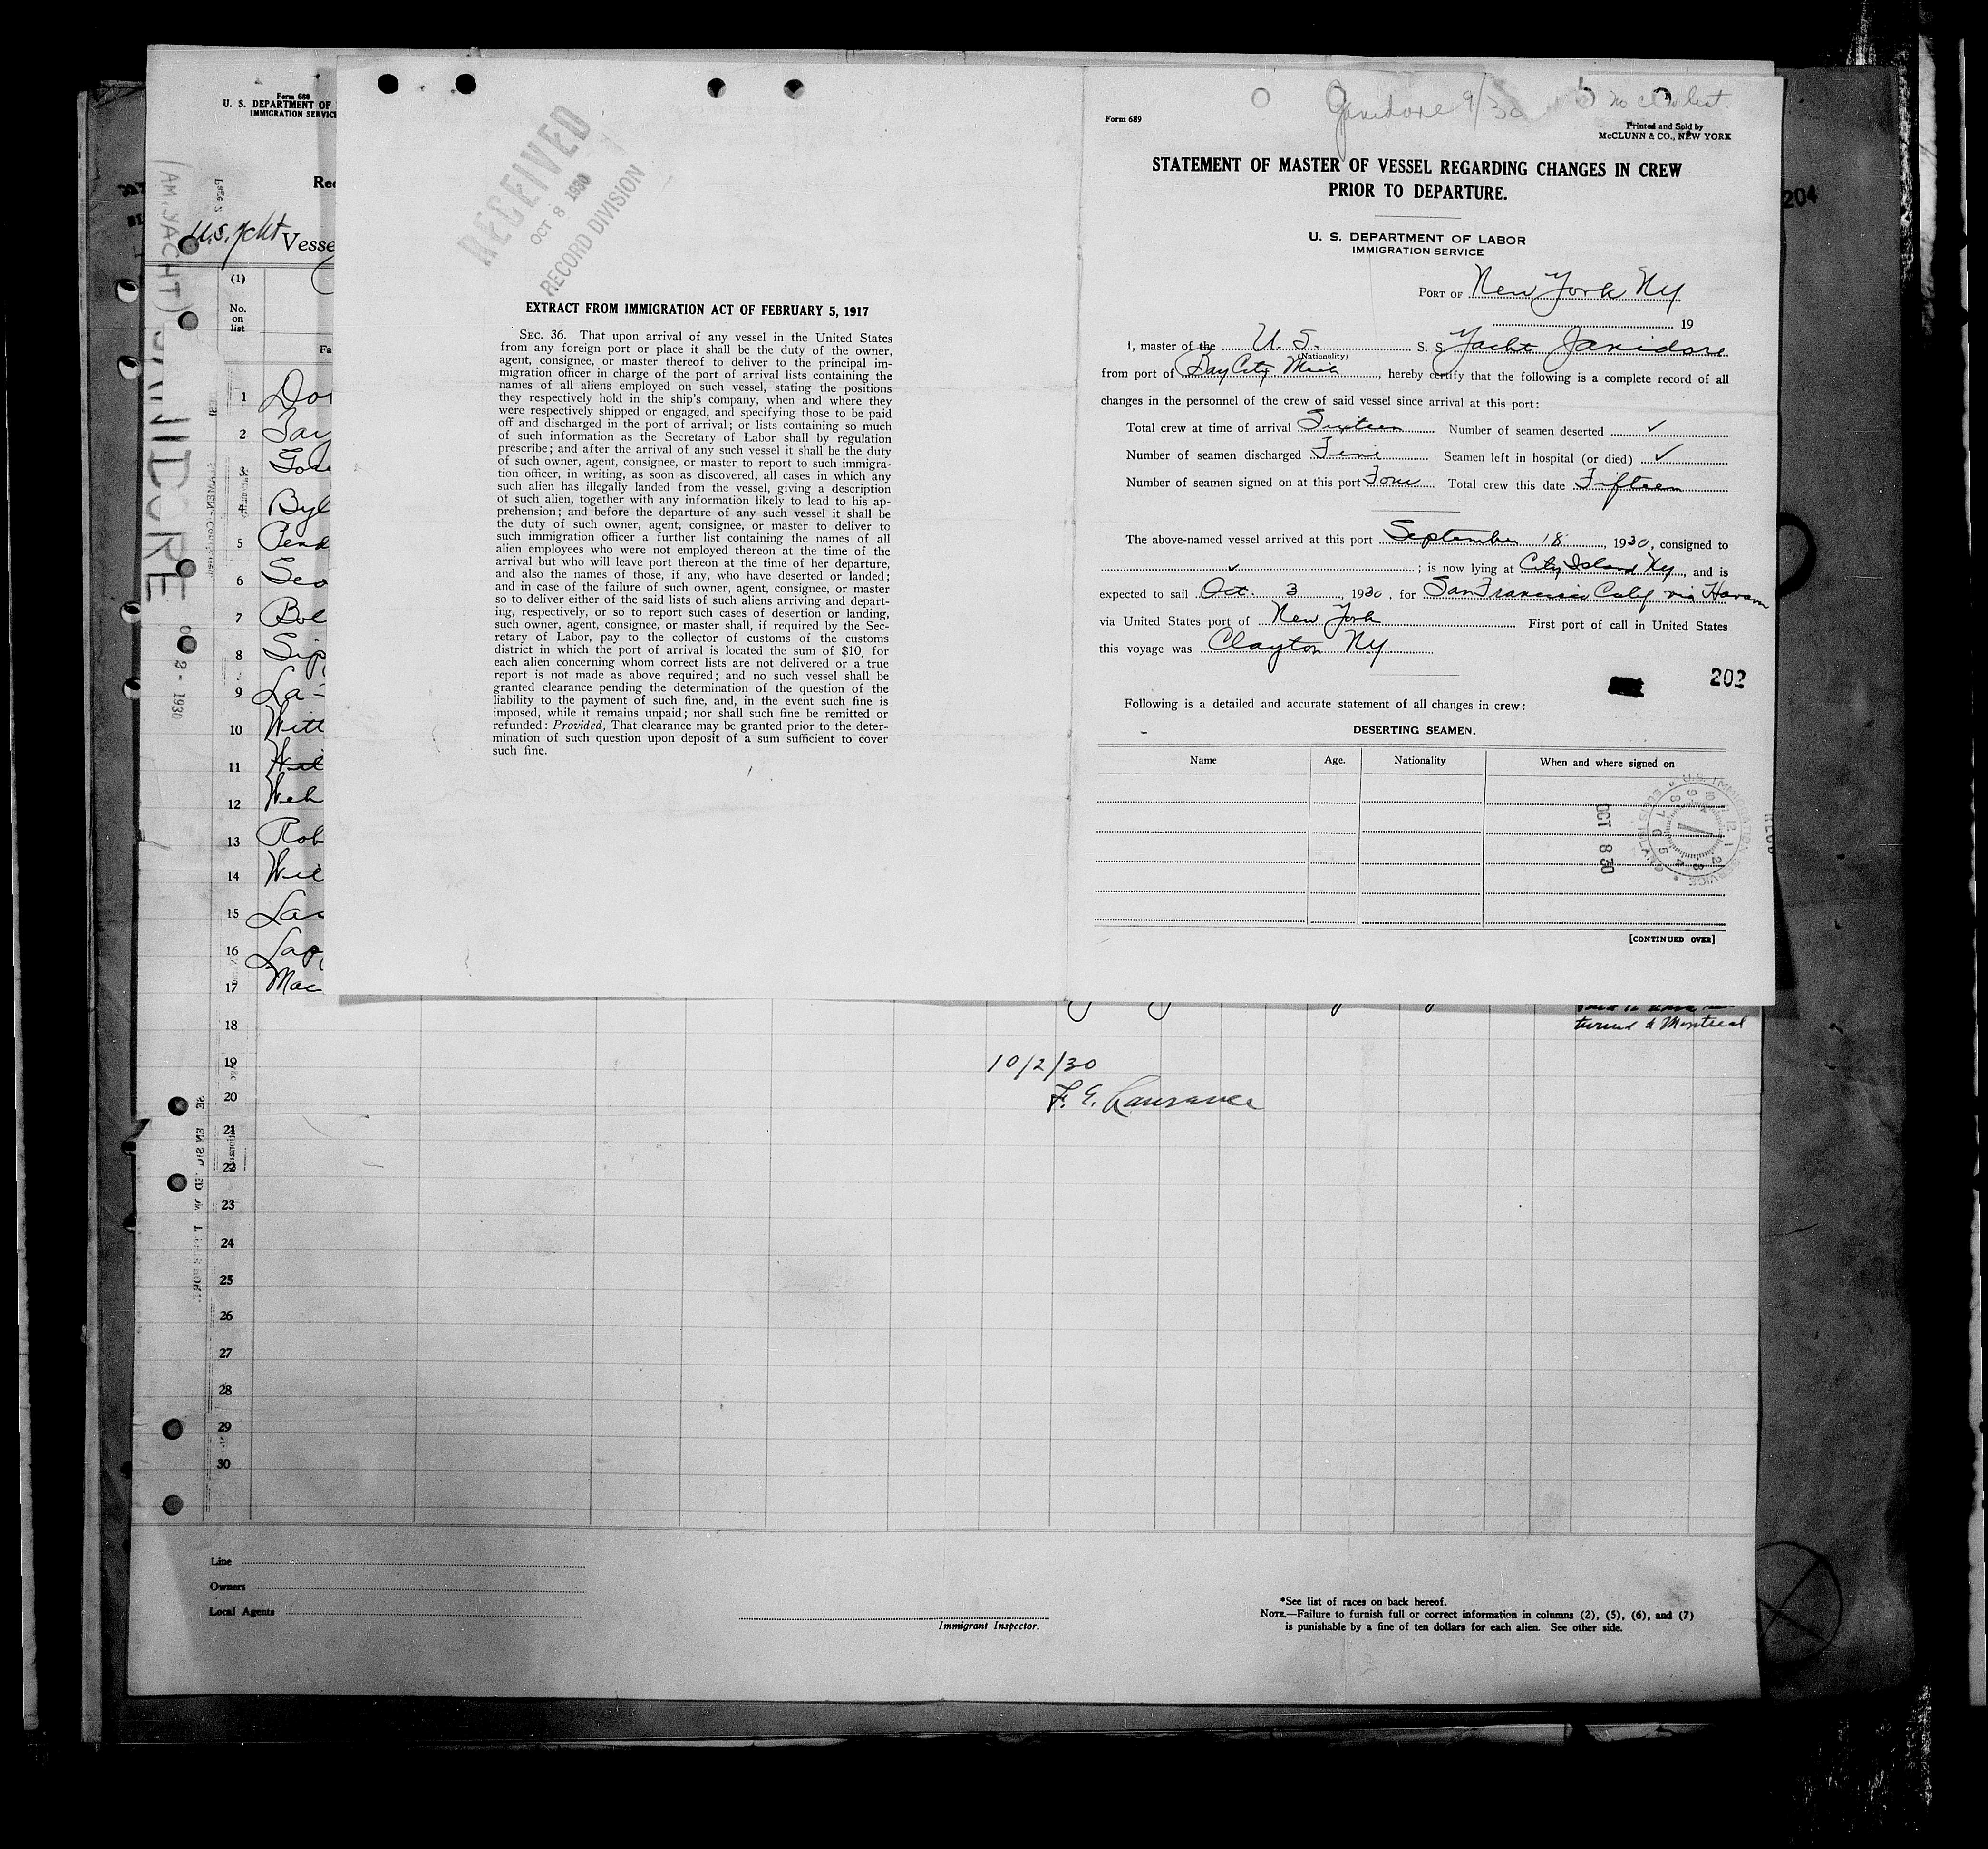 Form 680
U. S. DEPARTMENT OF
IMMIGRATION SERVICE
(AM. YACHT)
U.S. Vesse
(1)
No.
on
list
Fa
1
2
3
4 Byl
5 Pend
6 Seo
7 Bol
8 Sip
9 La
10 Witt
11
12 Web
13 Rob
14 Wil
15
16
17 Mac
RECEIVED
OCT 8 1930
RECORD DIVISION
EXTRACT FROM IMMIGRATION ACT OF FEBRUARY 5, 1917
SEC. 36. That upon arrival of any vessel in the United States
from any foreign port or place it shall be the duty of the owner,
agent, consignee, or master thereof to deliver to the principal im-
migration officer in charge of the port of arrival lists containing the
names of all aliens employed on such vessel, stating the positions
they respectively hold in the ship's company, when and where they
were respectively shipped or engaged, and specifying those to be paid
off and discharged in the port of arrival; or lists containing so much
of such information as the Secretary of Labor shall by regulation
prescribe; and after the arrival of any such vessel it shall be the duty
of such owner, agent, consignee, or master to report to such immigra-
tion officer, in writing, as soon as discovered, all cases in which any
such alien has illegally landed from the vessel, giving a description
of such alien, together with any information likely to lead to his ap-
prehension; and before the departure of any such vessel it shall be
the duty of such owner, agent, consignee, or master to deliver to
such immigration officer a further list containing the names of all
alien employees who were not employed thereon at the time of the
arrival but who will leave port thereon at the time of her departure,
and also the names of those, if any, who have deserted or landed;
and in case of the failure of such owner, agent, consignee, or master
so to deliver either of the said lists of such aliens arriving and depart-
ing, respectively, or so to report such cases of desertion or landing,
such owner, agent, consignee, or master shall, if required by the Sec-
retary of Labor, pay to the collector of customs of the customs
district in which the port of arrival is located the sum of $10 for
each alien concerning whom correct lists are not delivered or a true
report is not made as above required; and no such vessel shall be
granted clearance pending the determination of the question of the
liability to the payment of such fine, and, in the event such fine is
imposed, while it remains unpaid; nor shall such fine be remitted or
refunded: Provided, That clearance may be granted prior to the deter-
mination of such question upon deposit of a sum sufficient to cover
such fine.
Janidore 9/30 no crew list.
Form 689
Printed and Sold by
McCLUNN & CO., NEW YORK
STATEMENT OF MASTER OF VESSEL REGARDING CHANGES IN CREW
PRIOR TO DEPARTURE.
U. S. DEPARTMENT OF LABOR
IMMIGRATION SERVICE
PORT OF New York NY
19
I, master of the U. S. S. S. Yacht Janidore
(Nationality)
from port of Bay City Mich, hereby certify that the following is a complete record of all
changes in the personnel of the crew of said vessel since arrival at this port:
Total crew at time of arrival Sixteen Number of seamen deserted ✓
Number of seamen discharged Five Seamen left in hospital (or died) ✓
Number of seamen signed on at this port Four Total crew this date Fifteen
The above-named vessel arrived at this port September 18, 1930, consigned to
✓; is now lying at City Island NY, and is
expected to sail Oct. 3, 1930, for San Francisco Calif via Havana
via United States port of New York First port of call in United States
this voyage was Clayton NY
202
Following is a detailed and accurate statement of all changes in crew:
DESERTING SEAMEN.
Name Age. Nationality When and where signed on
OCT 8 30
U.S. IMMIGRATION SERVICE ELLIS ISLAND
[CONTINUED OVER]
204
turned to Montreal
18
19
20
21
22
23
24
25
26
27
28
29
30
10/2/30
Line
Owners
Local Agents
Immigrant Inspector.
*See list of races on back hereof.
NOTE.—Failure to furnish full or correct information in columns (2), (5), (6), and (7)
is punishable by a fine of ten dollars for each alien. See other side.